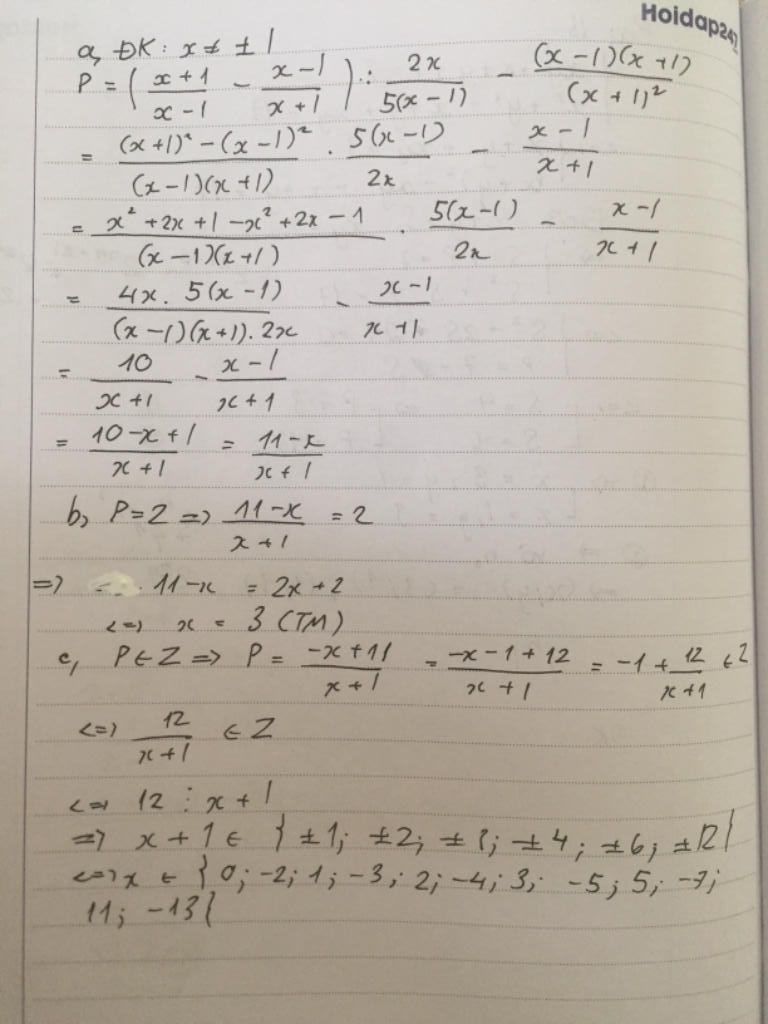 Hoidap247
a, ĐK: x ≠ ±1
P = ( (x+1)/(x-1) - (x-1)/(x+1) ) : 2x/(5(x-1)) - ((x-1)(x+1))/(x+1)²
= ((x+1)² - (x-1)²)/((x-1)(x+1)) . 5(x-1)/2x - (x-1)/(x+1)
= (x² + 2x + 1 - x² + 2x - 1)/((x-1)(x+1)) . 5(x-1)/2x - (x-1)/(x+1)
= (4x. 5(x-1))/((x-1)(x+1). 2x) - (x-1)/(x+1)
= 10/(x+1) - (x-1)/(x+1)
= (10-x+1)/(x+1) = (11-x)/(x+1)
b, P=2 => (11-x)/(x+1) = 2
=> 11-x = 2x+2
<=> x = 3 (TM)
c, P∈Z => P = (-x+11)/(x+1) = (-x-1+12)/(x+1) = -1 + 12/(x+1) ∈ Z
<=> 12/(x+1) ∈ Z
<=> 12 ⋮ x+1
=> x+1 ∈ { ±1; ±2; ±3; ±4; ±6; ±12}
<=> x ∈ { 0; -2; 1; -3; 2; -4; 3; -5; 5; -7;
11; -13}